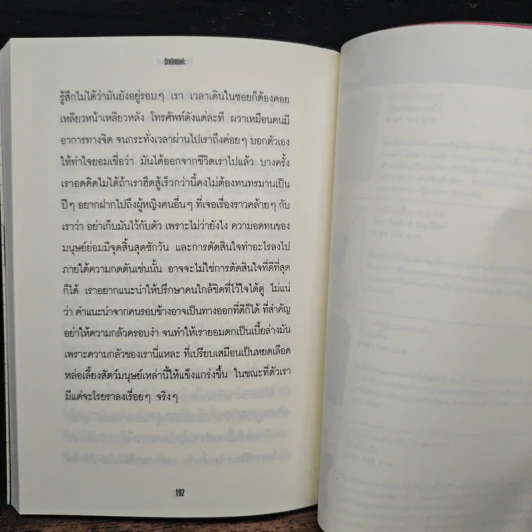 รู้สึกไม่ได้ว่ามันยังอยู่รอบๆ เรา เวลาเดินในซอยก็ต้องคอย
เหลียวหน้าเหลียวหลัง โทรศัพท์ดังแต่ละที ผวาเหมือนคนมี
อาการทางจิต จนกระทั่งเวลาผ่านไปเราถึงค่อยๆ บอกตัวเอง
ให้ทำใจยอมเชื่อว่า มันได้ออกจากชีวิตเราไปแล้ว บางครั้ง
เราอดคิดไม่ได้ถ้าเราฮึดสู้เร็วกว่านี้คงไม่ต้องทนทรมานเป็น
ปีๆ อยากฝากไปถึงผู้หญิงคนอื่นๆ ที่เจอเรื่องราวคล้ายๆ กับ
เราว่า อย่าเก็บมันไว้กับตัว เพราะไม่ว่ายังไง ความอดทนของ
มนุษย์ย่อมมีจุดสิ้นสุดซักวัน และการตัดสินใจทำอะไรลงไป
ภายใต้ความกดดันเช่นนั้น อาจจะไม่ใช่การตัดสินใจที่ดีที่สุด
ก็ได้ เราอยากแนะนำให้ปรึกษาคนใกล้ชิดที่ไว้ใจได้ดู ไม่แน่
ว่า คำแนะนำจากคนรอบข้างอาจเป็นทางออกที่ดีก็ได้ ที่สำคัญ
อย่าให้ความกลัวครอบงำ จนทำให้เรายอมตกเป็นเบี้ยล่างมัน
เพราะความกลัวของเรานี่แหละ ที่เปรียบเสมือนเป็นหยดเลือด
หล่อเลี้ยงสัตว์มนุษย์เหล่านี้ให้แข็งแกร่งขึ้น ในขณะที่ตัวเรา
มีแต่จะโรยราลงเรื่อยๆ จริงๆ
192